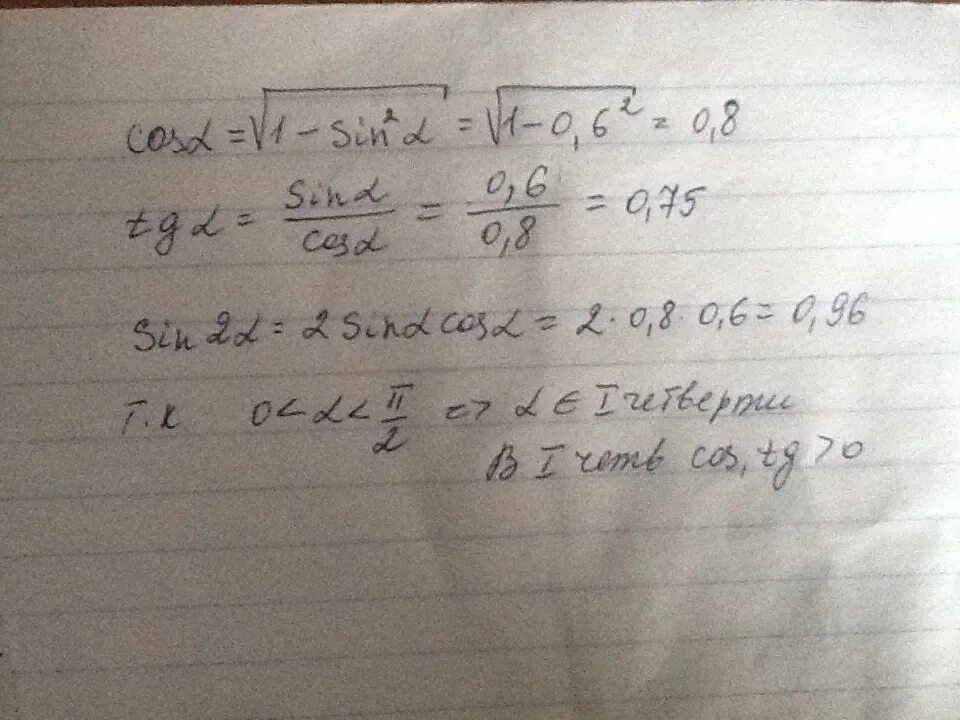 cosα = √1 - sin²α = √1 - 0,6² = 0,8
tg α = sinα/cosα = 0,6/0,8 = 0,75
sin 2α = 2 sinα cosα = 2 · 0,8 · 0,6 = 0,96
Т.к 0 < α < π/2 => α ∈ I четверти
В I четв cos, tg > 0